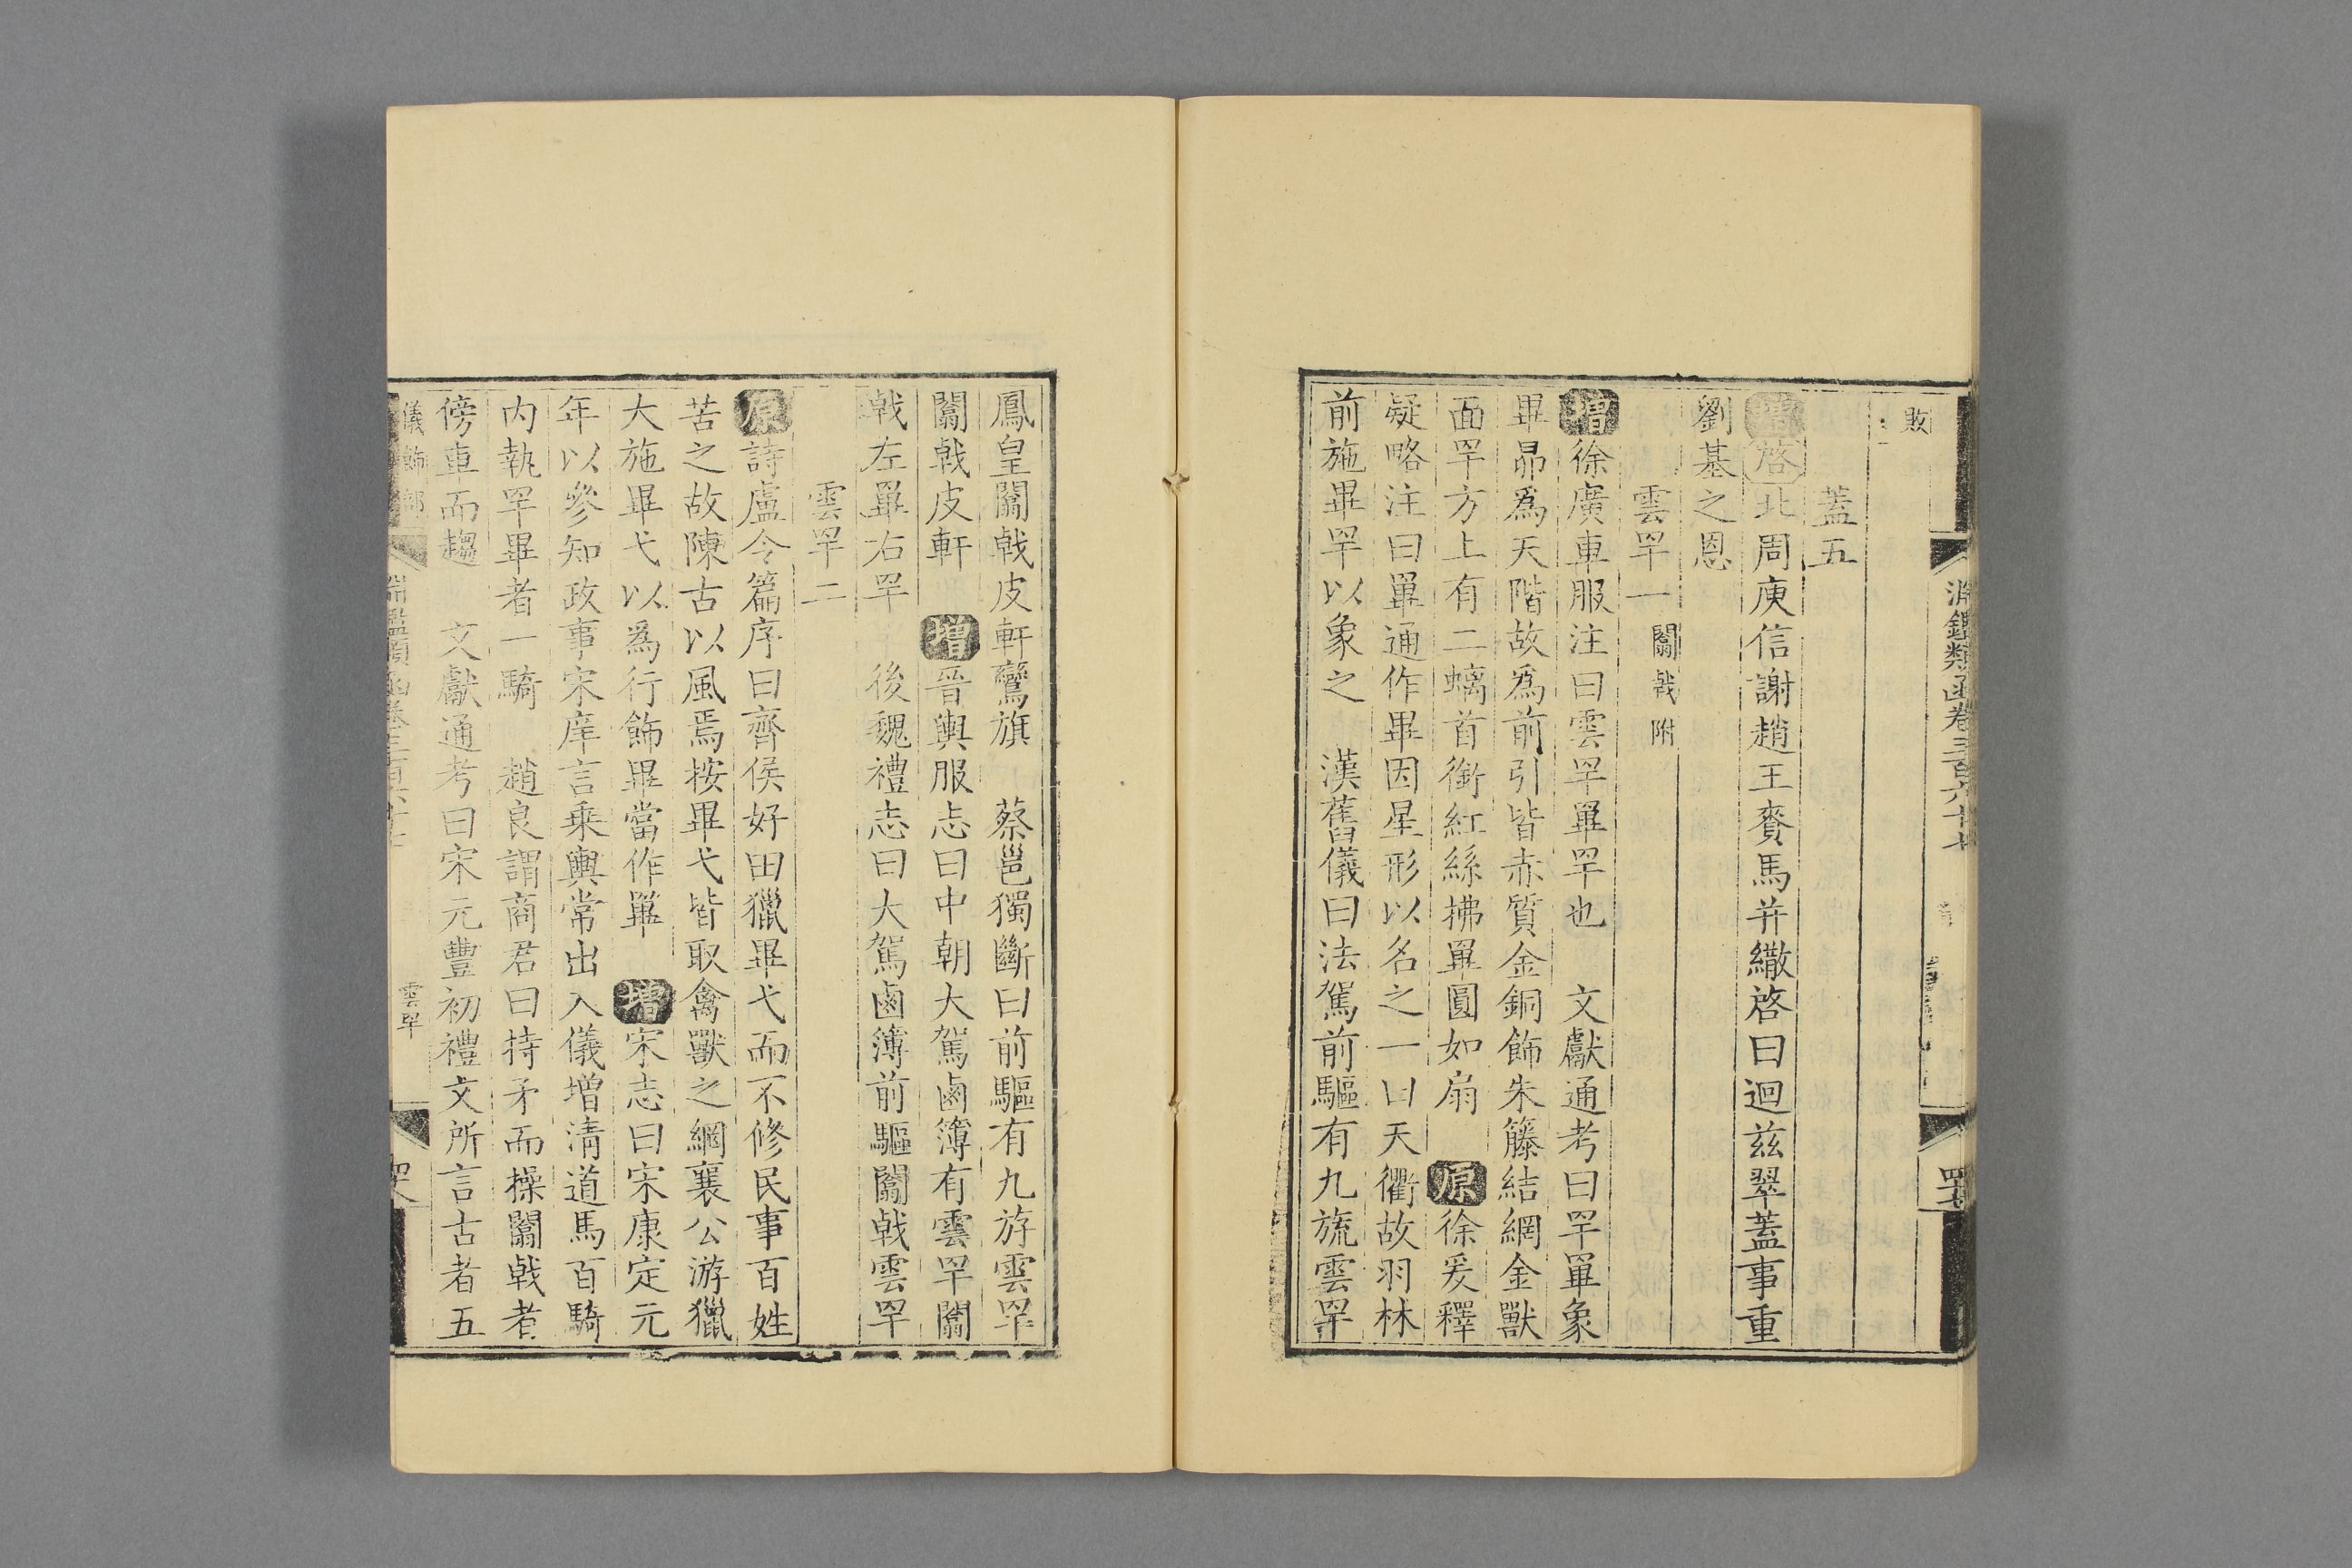 淵鑑類函卷三百六十七
敗
蓋五
增啓北周庾信謝趙王賚馬并繖啓曰迴兹翠蓋事重
劉基之恩
雲䍐一 闟戟附
增徐廣車服注曰雲䍐罼䍐也 文獻通考曰䍐罼象
畢昴爲天階故爲前引皆赤質金銅飾朱籐結網金獸
面䍐方上有二螭首銜紅絲拂罼圓如扇 原徐爰釋
疑略注曰罼通作畢因星形以名之一曰天衢故羽林
前施畢䍐以象之 漢舊儀曰法駕前驅有九旒雲䍐
鳳皇闟戟皮軒鸞旗 蔡邕獨斷曰前驅有九斿雲䍐
闟戟皮軒 增晉輿服志曰中朝大駕鹵簿有雲䍐闟
戟左罼右䍐 後魏禮志曰大駕鹵簿前驅闟戟雲䍐
雲䍐二
原詩盧令篇序曰齊侯好田獵畢弋而不修民事百姓
苦之故陳古以風焉按畢弋皆取禽獸之網襄公游獵
大施畢弋以爲行飾畢當作罼 增宋志曰宋康定元
年以參知政事宋庠言乘輿常出入儀增清道馬百騎
内執䍐畢者一騎 趙良謂商君曰持矛而操闟戟者
傍車而趨 文獻通考曰宋元豐初禮文所言古者五
儀飾部 淵鑑類函卷三百六十七 雲䍐